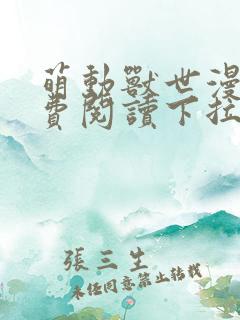 萌動獸世漫
費閱讀下拉
張三生
未經同意禁止轉載